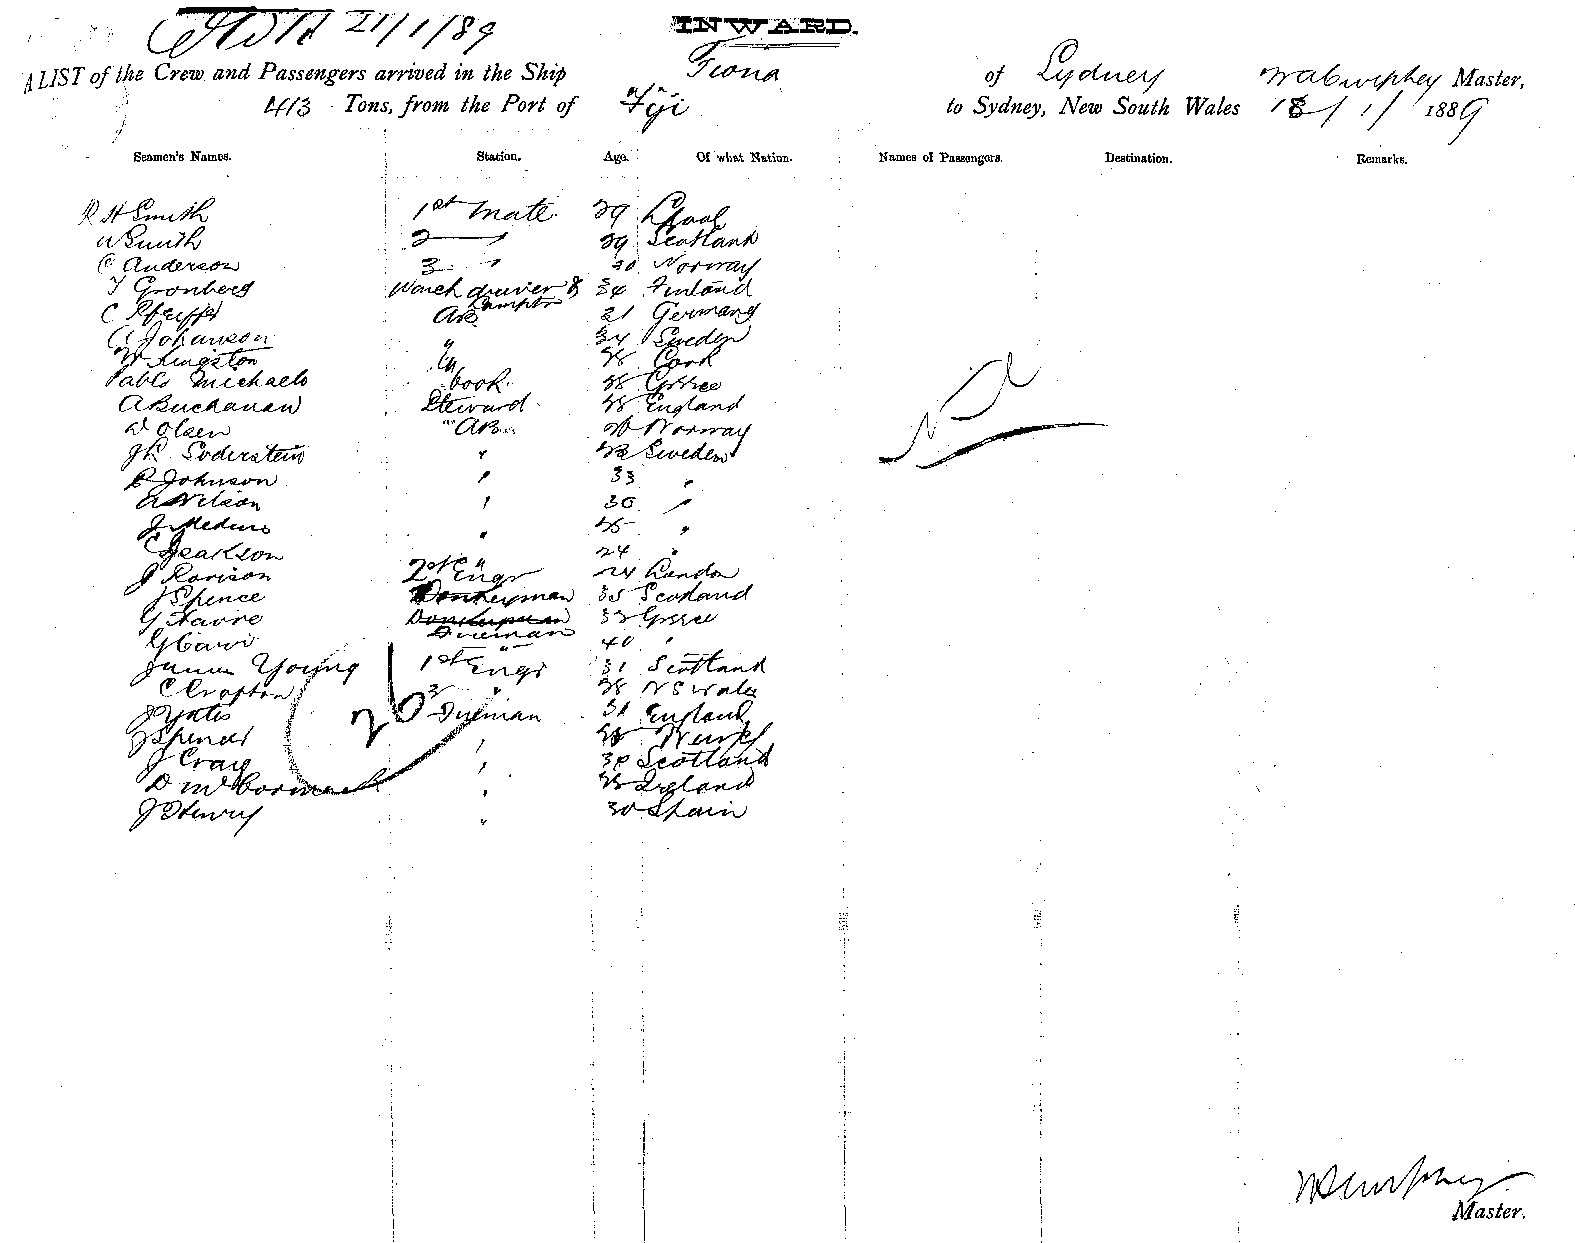 21/1/89
INWARD.
A LIST of the Crew and Passengers arrived in the Ship Fiona of Sydney Master,
413 Tons, from the Port of Fiji to Sydney, New South Wales 18/1/1889
Seamen's Names. Station. Age. Of what Nation. Names of Passengers. Destination. Remarks.
R H Smith 1st Mate 29 L'pool
W Smith 2 " 29 Scotland
C Anderson 3 " 20 Norway
T Gronberg Winch driver & 34 Finland
Lamptr
C Pfeiffer AB 21 Germany
C Johanson " 24 Sweden
W Kingston " 28 Cork
Pablo Michaelo Cook 38 Greece
A Buchanan Steward 28 England
W Olsen "AB" 20 Norway
J R Soderstein " 22 Sweden
P Johnson " 33 "
A Nelson " 30 "
J " 25 "
C Jearkson " 24 "
J Rorison 2nd Engr 24 London
J Spence Donkeyman 35 Scotland
G Favre Donkeyman 32 Greece
Fireman
G 40 "
James Young 1st Engr 31 Scotland
C Cropton 3 " 28 N S Wales
J Yates Fireman 31 England
J "
J Craig " 30 Scotland
D McCormack " 28 Ireland
J Henry " 30 Spain
20
Master.